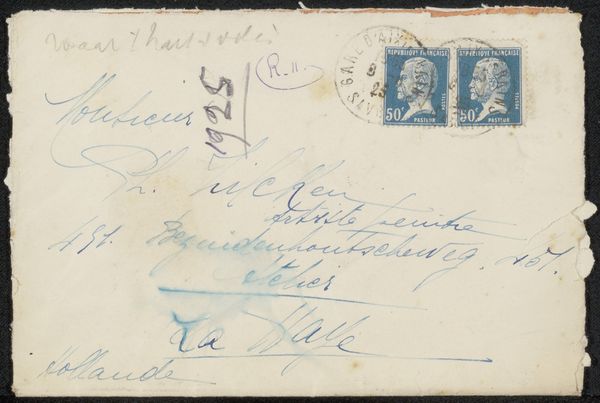 R.11.
1925
GARE D'AIX
RÉPUBLIQUE FRANÇAISE
50c
POSTES
PASTEUR
RÉPUBLIQUE FRANÇAISE
50c
POSTES
PASTEUR
Monsieur
Ph. Zilcken
Artiste peintre
451. Bezuidenhoutscheweg. 451.
Atelier
La Haye
Hollande